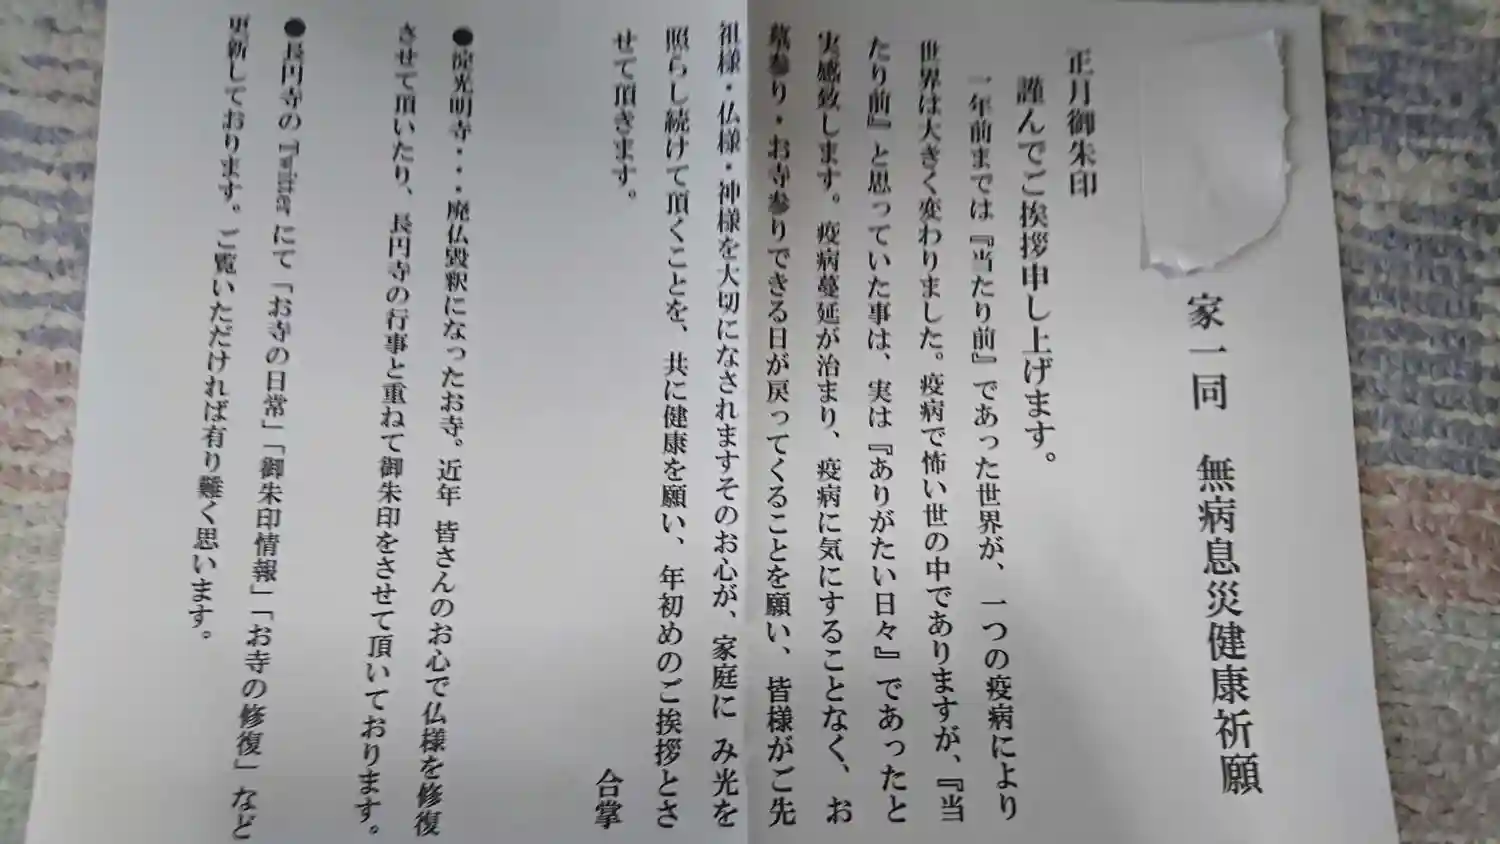 家一同　無病息災健康祈願
正月御朱印
謹んでご挨拶申し上げます。
一年前までは『当たり前』であった世界が、一つの疫病により
世界は大きく変わりました。疫病で怖い世の中でありますが、『当
たり前』と思っていた事は、実は『ありがたい日々』であったと
実感致します。疫病蔓延が治まり、疫病に気にすることなく、お
墓参り・お寺参りできる日が戻ってくることを願い、皆様がご先
祖様・仏様・神様を大切になされますそのお心が、家庭に み光を
照らし続けて頂くことを、共に健康を願い、年初めのご挨拶とさ
せて頂きます。
合掌
●淀光明寺・・・廃仏毀釈になったお寺。近年 皆さんのお心で仏様を修復
させて頂いたり、長円寺の行事と重ねて御朱印をさせて頂いております。
●長円寺の『Twitter』にて「お寺の日常」「御朱印情報」「お寺の修復」など
更新しております。ご覧いただければ有り難く思います。